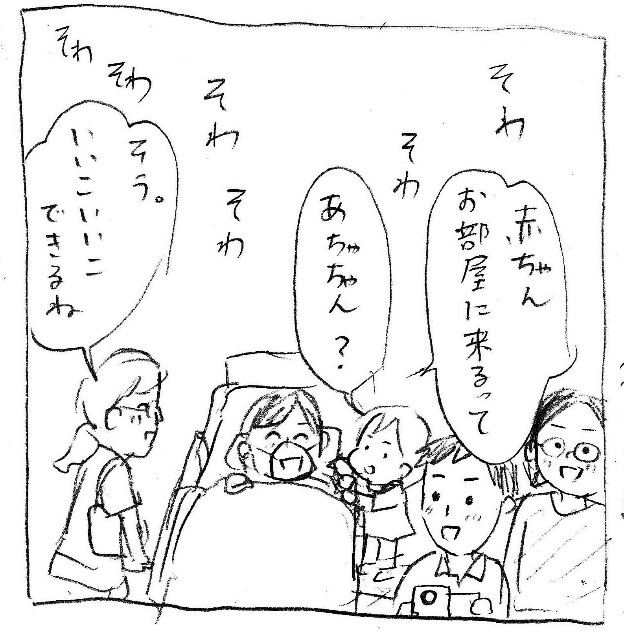 そわ
そわ
そわ
そわ
そわ
赤ちゃん
お部屋に来るって
あちゃちゃん？
そわ
そう。
いいこいいこ
できるね